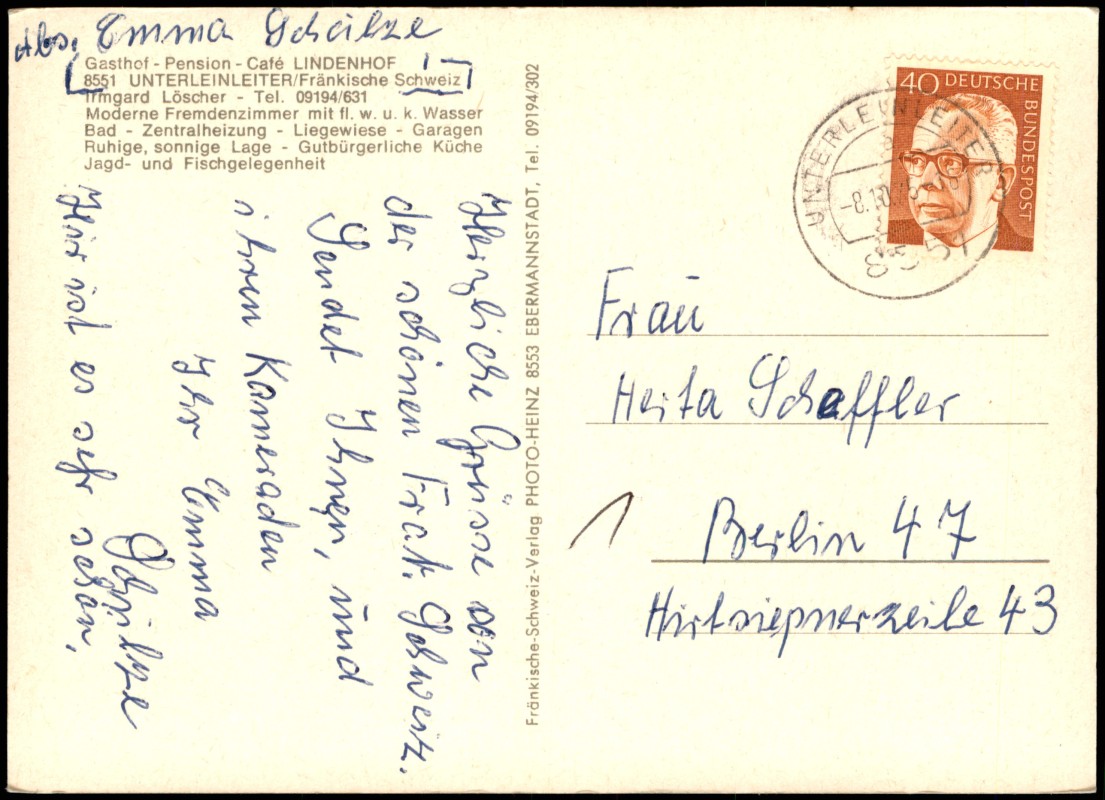 Abs. Emma Schülze
Gasthof - Pension - Café LINDENHOF
8551 UNTERLEINLEITER/Fränkische Schweiz
Irmgard Löscher - Tel. 09194/631
Moderne Fremdenzimmer mit fl. w. u. k. Wasser
Bad - Zentralheizung - Liegewiese - Garagen
Ruhige, sonnige Lage - Gutbürgerliche Küche
Jagd- und Fischgelegenheit
Herzliche Grüsse von
der schönen Frat. Schweitz.
Sendet Ihnen, und
ihren Kameraden
Ihr Emma
Schülze
Hier ist es sehr schön,
Fränkische-Schweiz-Verlag PHOTO-HEINZ 8553 EBERMANNSTADT, Tel. 09194/302
40 DEUTSCHE
BUNDESPOST
UNTERLEINLEITER
-8.10.
8551
Frau
Herta Scheffler
1
Berlin 47
Hirtsiepnerzeile 43